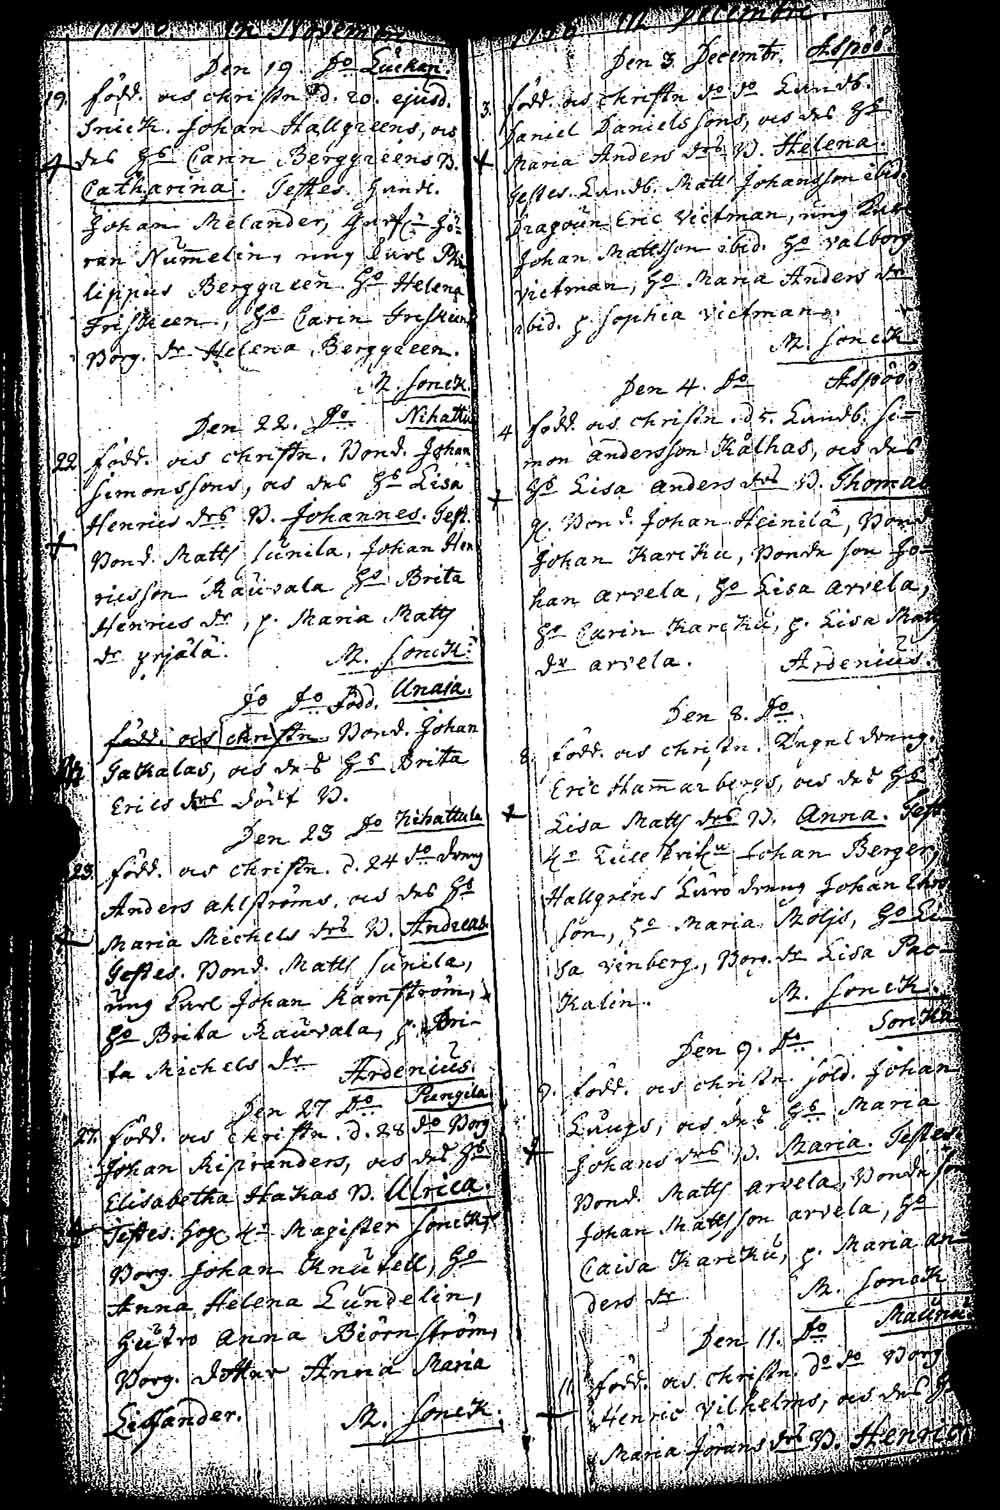 in November
Den 19. Do Luckan.
19. född. ock christn. d. 20. ejusd.
Snick. Johan Hallgreens, ock
des Hs Carin Berggreens B.
Catharina. Testes. Handl.
Johan Melander, Gö-
ran Numelin, ung Karl Phi-
lippus Berggreen Ho Helena
Friskeen, Ho Carin Friskeen
Borg. dr Helena Berggreen.
M. Sonck.
Den 22. Do. Nihattu
22 född. ock christn. Bond. Johan
Simonssons, ock des Hs Lisa
Henrics drs B. Johannes. Test.
Bond. Matts Sunila, Johan Hen
ricsson Rauvala Ho Brita
Henrics dr, p. Maria Matts
dr prjälä.
M. Sonck.
Do Do Född. Unaja.
född. ock christn. Bond. Johan
22 Jakalas, ock des Hs Brita
Erics drs dödt B.
Den 23 Do Kihattula
23. född. ock christn. d. 24 do dreng
Anders Ahlströms, ock des Hs
Maria Michels drs B. Andreas.
Testes. Bond. Matts Sunila,
ung Karl Johan Ramström,
Ho Brita Rauvala, p. Bri-
ta Michels dr
Ardenius.
Den 27 Do Pungila
27. född. ock christn. d. 28 do Borg
Johan Risiranders, ock des Hs
Elisabetha Hakas B. Ulrica.
Testes. Magister Sonck,
Borg. Johan Knutell, Ho
Anna Helena Lundelin,
Hustro Anna Biörnström,
Borg. dotter Anna Maria
Lissander. M. Sonck.
in Decembri.
Den 3 Decembr. Aspöö
3. född. ock christn do do Landb.
Daniel Danielssons, ock des Hs
Maria Anders drs B. Helena.
Testes. Landb. Matts Johansson ibid.
Dragoun Eric Victman, ung Karl
Johan Mattsson ibid. Ho Valborg
Victman, Ho Maria Anders dr
ibid. p. Sophia Victman.
M. Sonck
Den 4. Do Aspöö
4 född. ock christn. d 5. Landb. Si-
mon Andersson Kålhas, ock des
Hs Lisa Anders drs B. Thomas
Bond. Johan Heinilä, Bond
Johan Karcku, Bonde son Jo-
han Arvela, Ho Lisa Arvela,
Ho Carin Karcku, p. Lisa Matts
dr Arvela. Ardenius.
Den 8. Do.
8. född. ock christn. dreng.
Eric Hammarbergs, ock des Hs
Lisa Matts drs B. Anna. Test
Johan Berger,
Hallgrens dreng Johan
son, Ho Maria Höljs, Ho Li-
sa Vinberg, Borg. dr Lisa Pac-
kalin. M. Sonck.
Den 9. Do Sorcku
9. född. ock christn. Sold. Johan
Laugs, ock des Hs Maria
Johans drs B. Maria. Testes.
Bond. Matts Arvela, Bonde so
Johan Mattsson Arvela, Ho
Caisa Karcku, p. Maria An
ders dr M. Sonck
Den 11. Do Mauna
11 född. ock christn. do do Borg
Henric Vilhelms, ock des Hs
Maria Jörans drs B. Henric